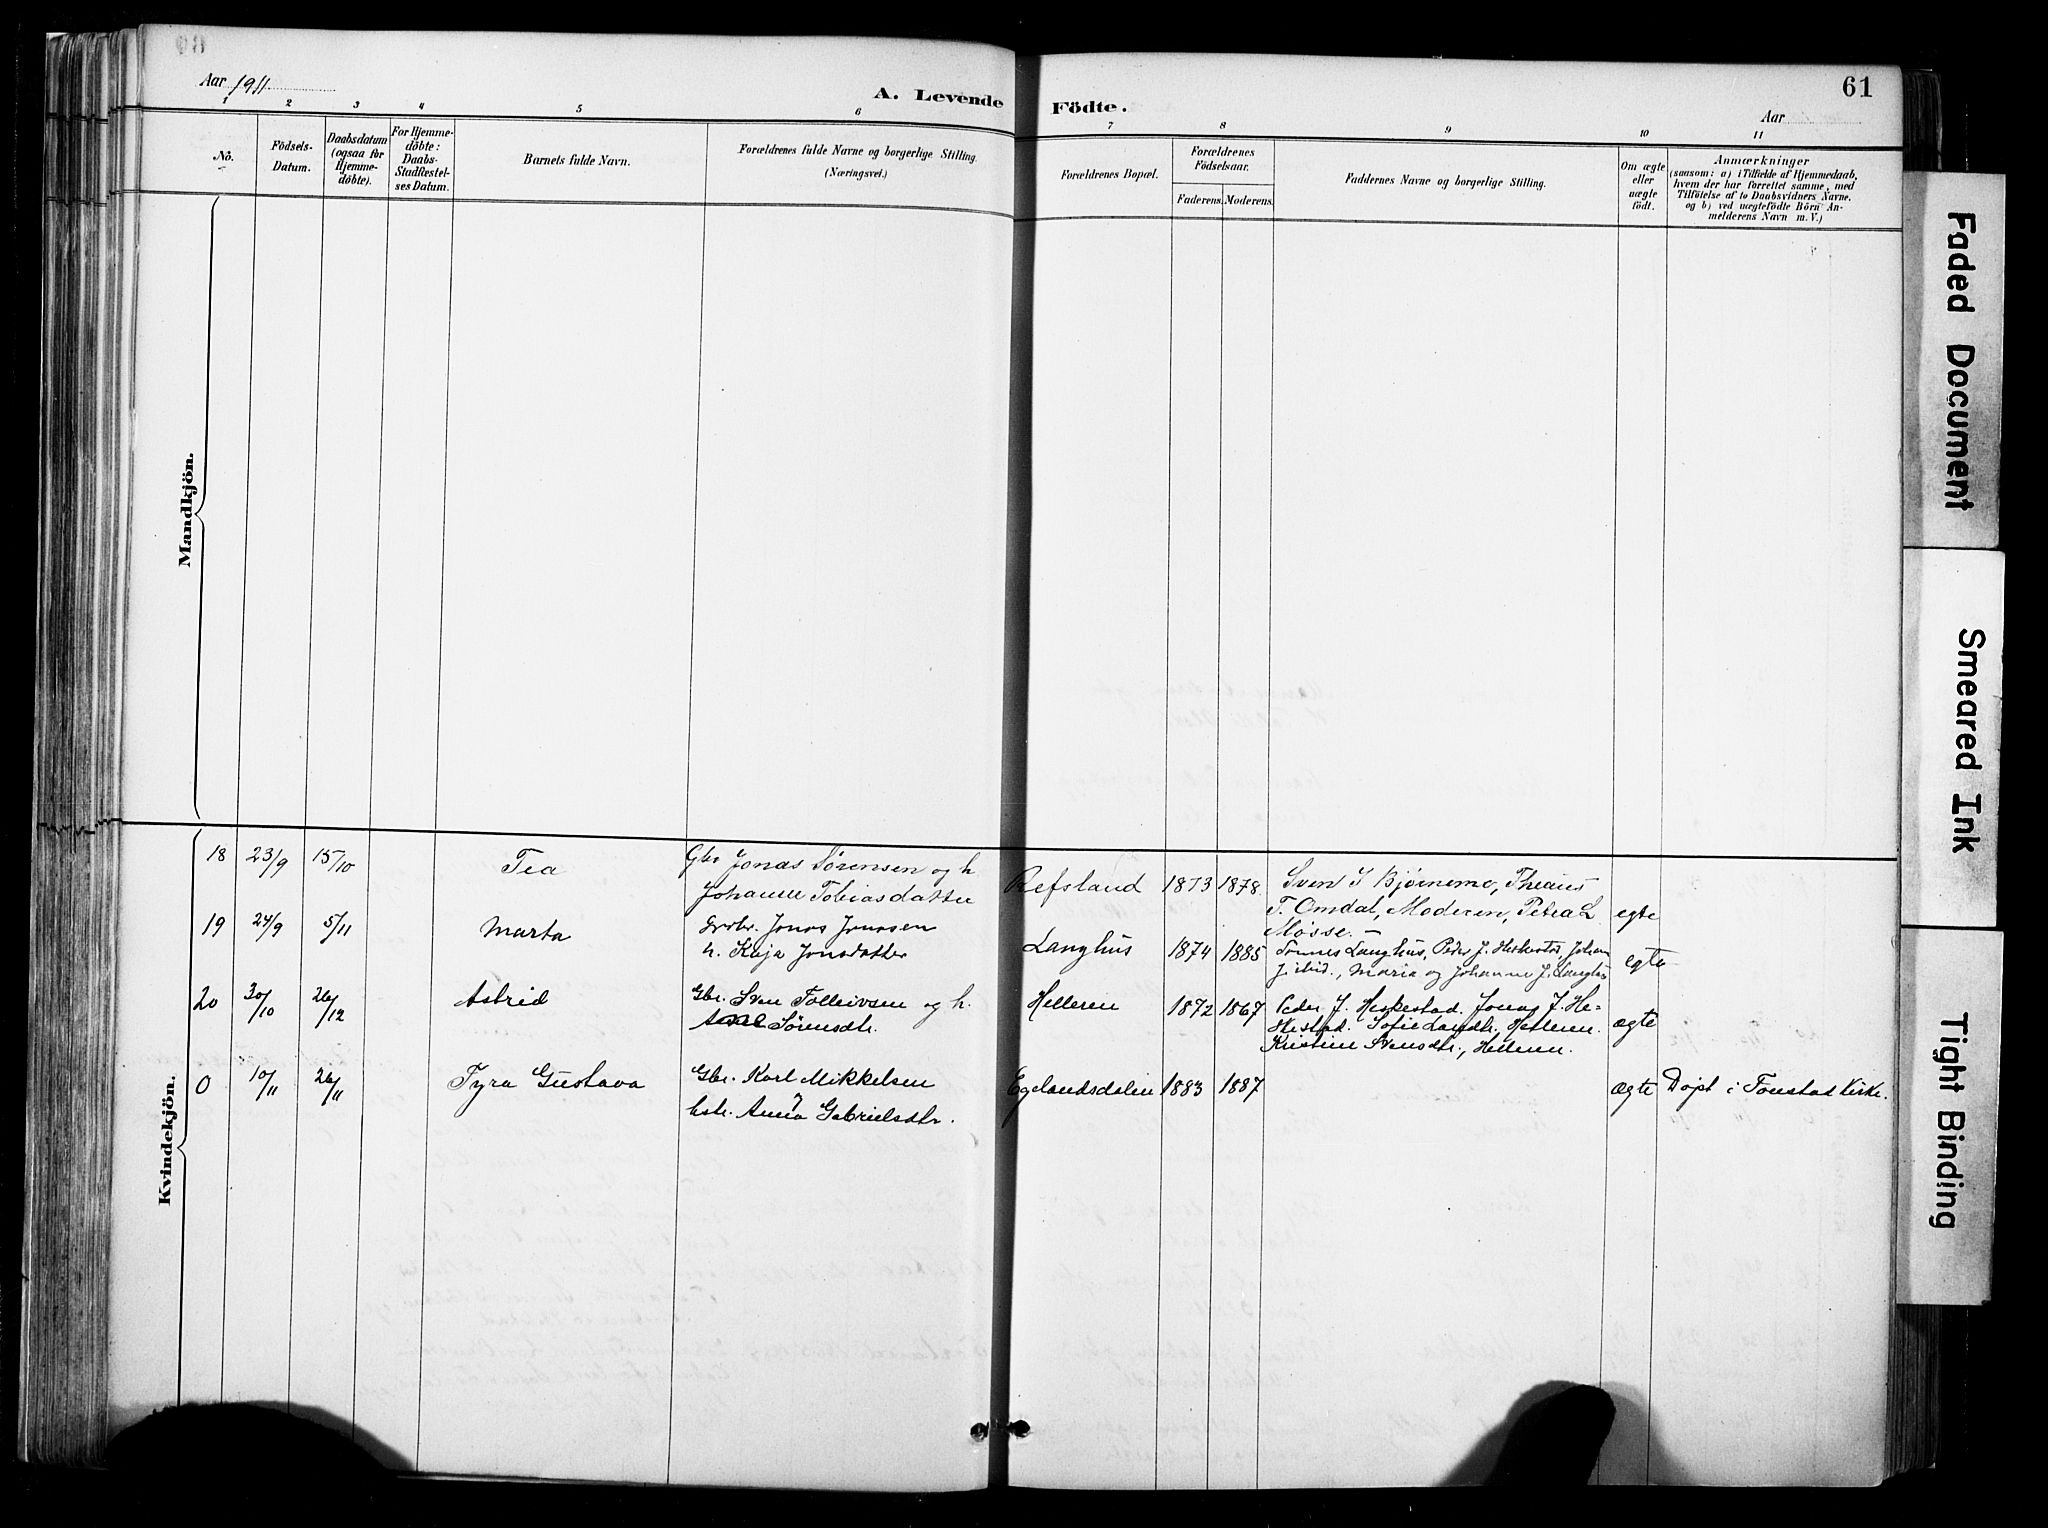 Aar 1911
A. Levende Födte.
61
Aar
1 2 3 4 5 6 7 8 9 10 11
No.
Födsels-Datum.
Daabsdatum (ogsaa for Hjemmedöbte).
For Hjemmedöbte: Daabs-Stadfæstelses Datum.
Barnets fulde Navn.
Forældrenes fulde Navne og borgerlige Stilling.
(Næringsvei.)
Forældrenes Bopæl.
Forældrenes Födselsaar.
Faderens. Moderens.
Faddernes Navne og borgerlige Stilling.
Om ægte eller uægte födt.
Anmærkninger
(saasom: a) i Tilfælde af Hjemmedaab,
hvem der har forrettet samme, med
Tilföielse af to Daabsvidners Navne,
og b) ved uægtefödte Börn An-
melderens Navn m. V.)
Mandkjön.
Kvindekjön.
18 23/9 15/10 Tea Gbr Jonas Sørensen og h. Refsland 1873 1878 Sven I Bjørnemo, Theaus
Johanne Tobiasdatter T. Omdal, Moderen, Petrea L egte
Møsse. —
19 24/9 5/11 Marta Grbr. Jonas Jonassen Langhus 1874 1885 Tønnes Langhus, Peder J. Heskestad, Johan egte
h. Kaja Jonsdatter J. ibid., Maria og Johanne J. Langhus
20 30/10 26/12 Astrid Gbr. Sven Tolleivsen og h. Helleren 1872 1867 Peder J. Heskestad. Jonas J. He-
Ane Sørensdtr. skestad. Sofie Larsdtr., Helleren. ægte
Kristine Svensdtr., Helleren.
0 10/11 26/11 Tyra Gustava Gbr. Karl Mikkelsen Egelandsdalen 1883 1887 ægte Døpt i Tonstad Kirke.
hstr. Anna Gabrielsdtr.
Faded Document
Smeared Ink
Tight Binding